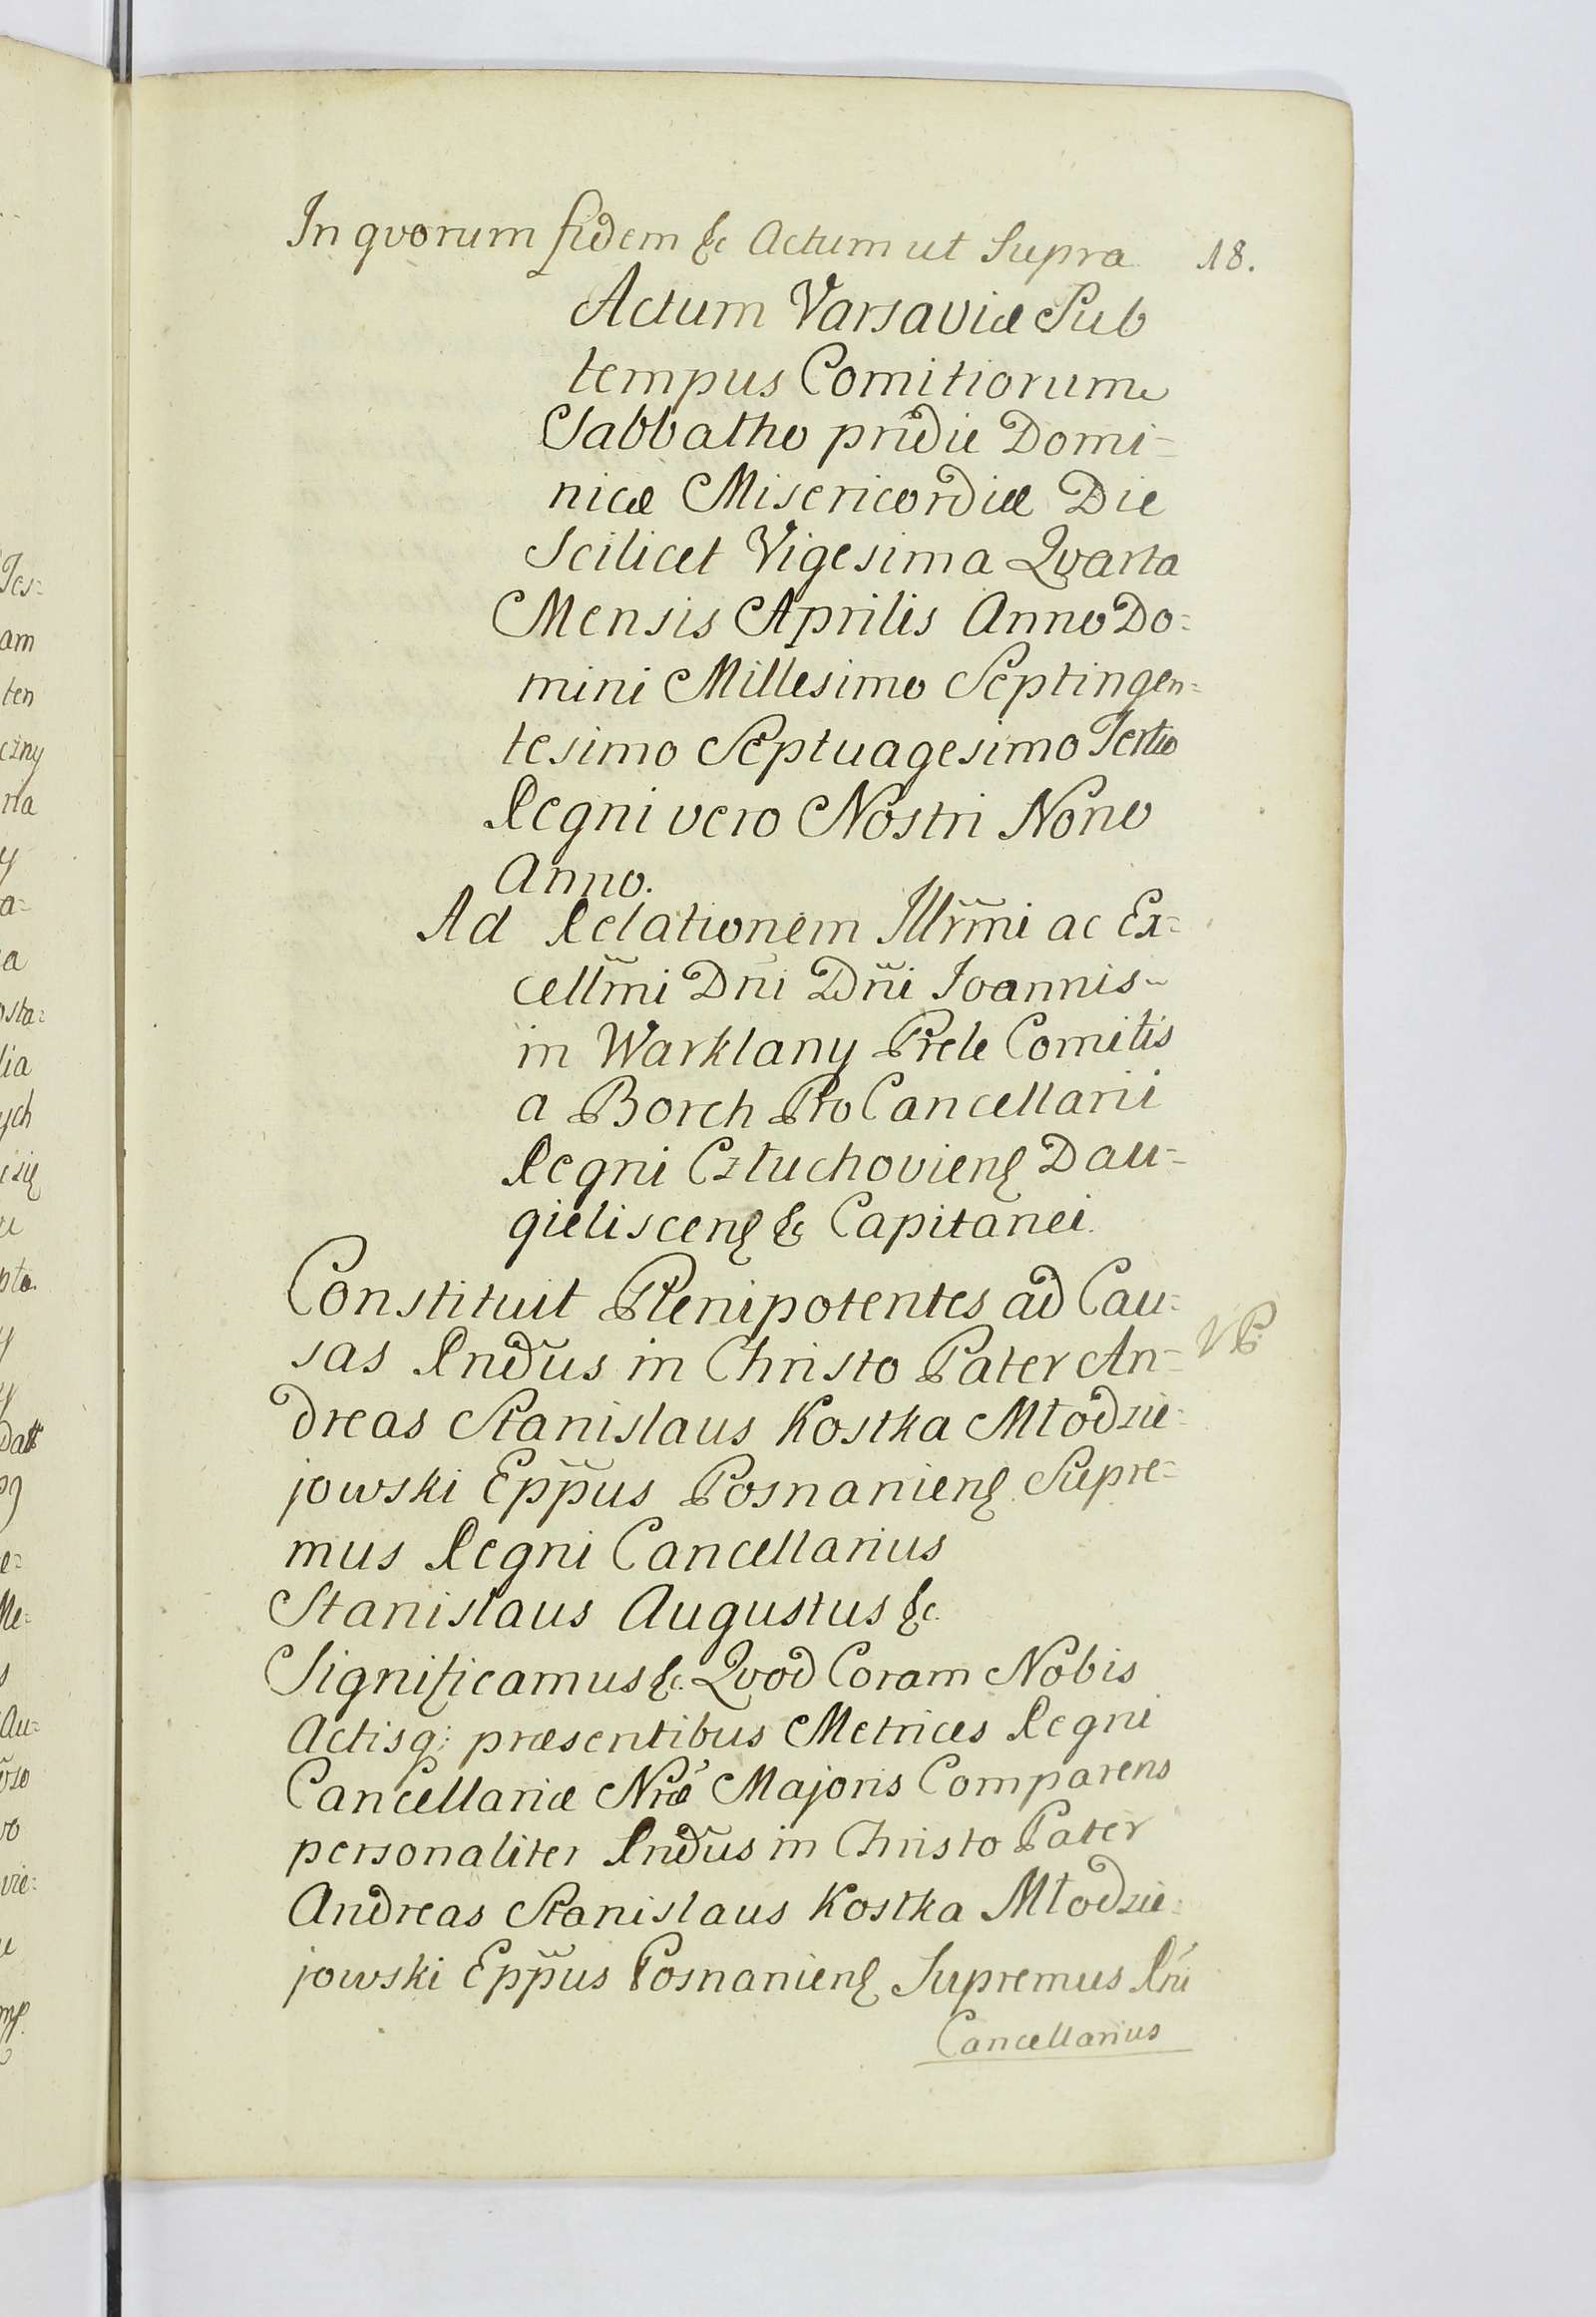 In qvorum fidem &c Actum ut Supra 18.
Actum Varsaviæ Sub
tempus Comitiorum
Sabbatho pridie Domi=
nicæ Misericordiæ Die
Scilicet Vigesima Qvarta
Mensis Aprilis Anno Do=
mini Millesimo Septingen=
tesimo Septuagesimo Tertio
Regni vero Nostri Nono
Anno.
Ad Relationem Illrm̃i ac Ex=
cellm̃i Dñi Dñi Joannis
in Warklany Prele Comitis
a Borch ProCancellarii
Regni Człuchovienſ Dau=
gieliscenſ &c Capitanei.
Constituit Plenipotentes ad Cau=
sas Rnd̃us in Christo Pater An=
dreas Stanislaus Kostka Młodzie=
jowski Epp̃us Posnanienſ Supre=
mus Regni Cancellarius
Stanislaus Augustus &c.
Significamus &c. Qvod Coram Nobis
Actisq; præsentibus Metrices Regni
Cancellariæ Nræ Majoris Comparens
personaliter Rnd̃us in Christo Pater
Andreas Stanislaus Kostka Młodzie=
jowski Epp̃us Posnanienſ Supremus Rni
Cancellarius